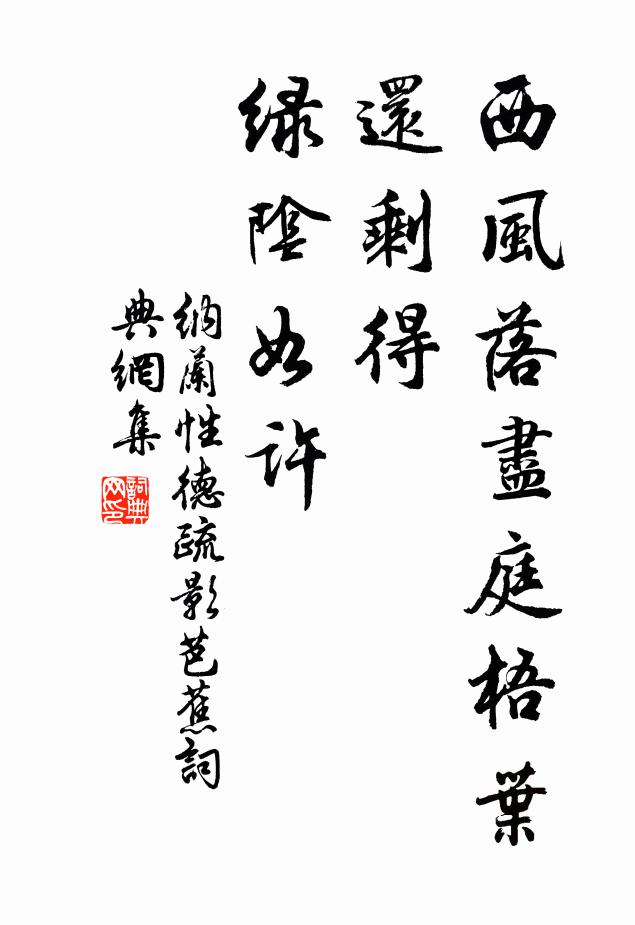 西風落盡庭梧葉
還剩得
綠陰如許
納蘭性德疏影芭蕉詞
典網集
詞典网印